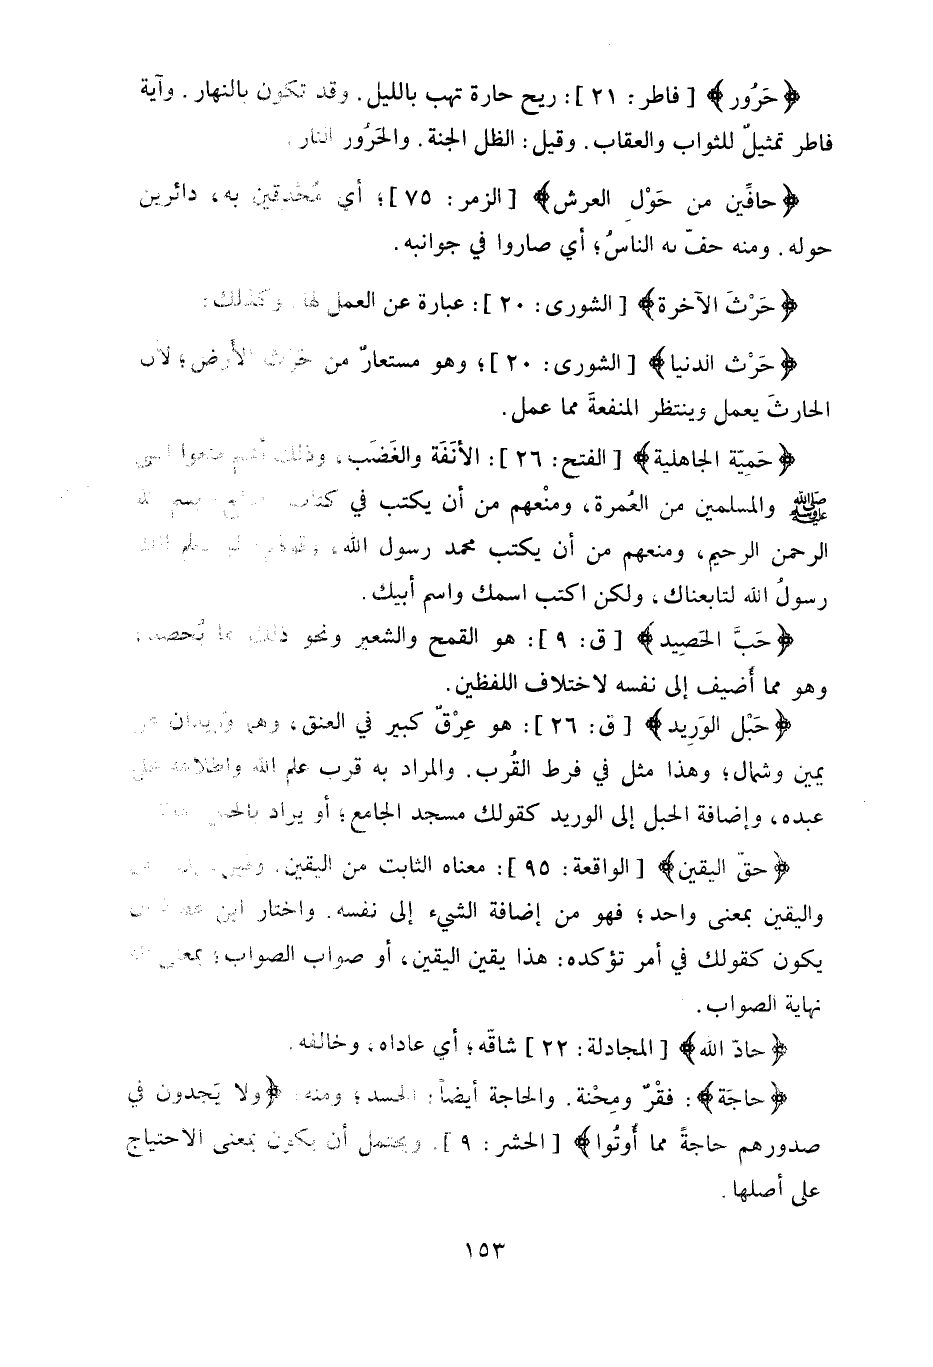 ﴿حَرُور﴾ [ فاطر : ٢١ ] : ريح حارة تهب بالليل . وقد تكون بالنهار . وآية
فاطر تمثيلٌ للثواب والعقاب . وقيل : الظل الجنة . والحَرُور النار .
﴿حافِّين من حَوْلِ العرش﴾ [ الزمر : ٧٥ ] ؛ أي مُحْدِقين به ، دائرين
حوله . ومنه حفّ به الناسُ ؛ أي صاروا في جوانبه .
﴿حَرْثَ الآخرة﴾ [ الشورى : ٢٠ ] : عبارة عن العمل لها . وكذلك :
﴿حَرْث الدنيا﴾ [ الشورى : ٢٠ ] ؛ وهو مستعارٌ من حَرْث الأَرض ؛ لأن
الحارثَ يعمل وينتظر المنفعةَ مما عمل .
﴿حَمِيّة الجاهلية﴾ [ الفتح : ٢٦ ] : الأنَفَة والغَضَب ، وذلك أنهم منعوا النبي
ﷺ والمسلمين من العُمرة ، ومنْعهم من أن يكتب في كتاب بسم الله
الرحمن الرحيم ، ومنعهم من أن يكتب محمد رسول الله ، وقولهم : لو نعلم أنك
رسولُ الله لتابعناك ، ولكن اكتب اسمك واسم أبيك .
﴿حَبَّ الحَصِيد﴾ [ ق : ٩ ] : هو القمح والشعير ونحو ذلك مما يُحصد ،
وهو مما أُضيف إلى نفسه لاختلاف اللفظين .
﴿حَبْل الوَرِيد﴾ [ ق : ٢٦ ] : هو عِرْقٌ كبير في العنق ، وهما وَرِيدان عن
يمين وشمال ؛ وهذا مثل في فرط القُرب . والمراد به قرب علم الله واطلاعه على
عبده ، وإضافة الحبل إلى الوريد كقولك مسجد الجامع ؛ أو يراد بالحبل
﴿حقّ اليقين﴾ [ الواقعة : ٩٥ ] : معناه الثابت من اليقين . وقيل :
واليقين بمعنى واحد ؛ فهو من إضافة الشيء إلى نفسه . واختار ابن عطية أن
يكون كقولك في أمر تؤكده : هذا يقين اليقين ، أو صواب الصواب ؛ بمعنى أنه
نهاية الصواب .
﴿حادّ الله﴾ [ المجادلة : ٢٢ ] شاقّه ؛ أي عاداه ، وخالفه .
﴿حاجَة﴾ : فقْرٌ ومِحْنة . والحاجة أيضاً : الحسد ؛ ومنه : ﴿ولا يَجدون في
صدورهم حاجةً مما أُوتُوا﴾ [ الحشر : ٩ ] . ويحتمل أن يكون بمعنى الاحتياج
على أصلها .
١٥٣